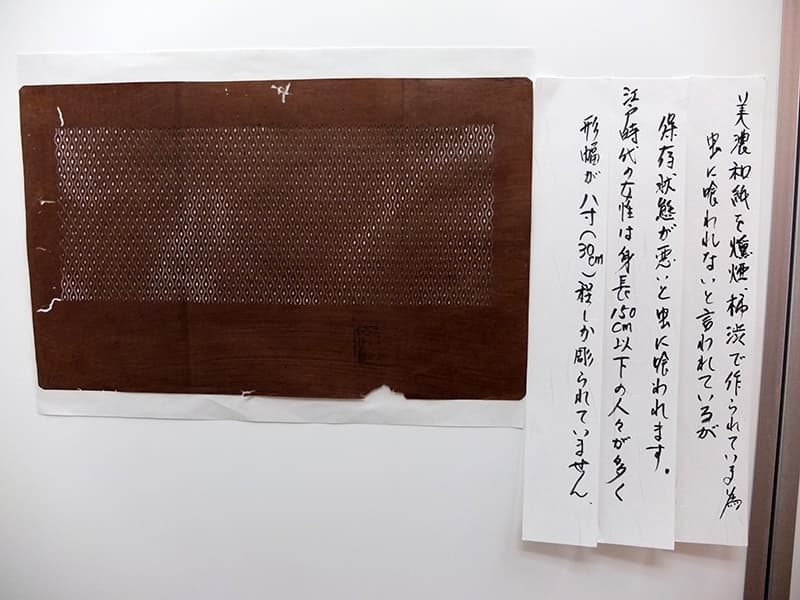 美濃和紙を燻煙、柿渋で作られている為
虫に喰われないと言われているが
保存状態が悪いと虫に喰われます。
江戸時代の女性は身長150cm以下の人々が多く
形幅が八寸(30cm)程しか彫られていません。